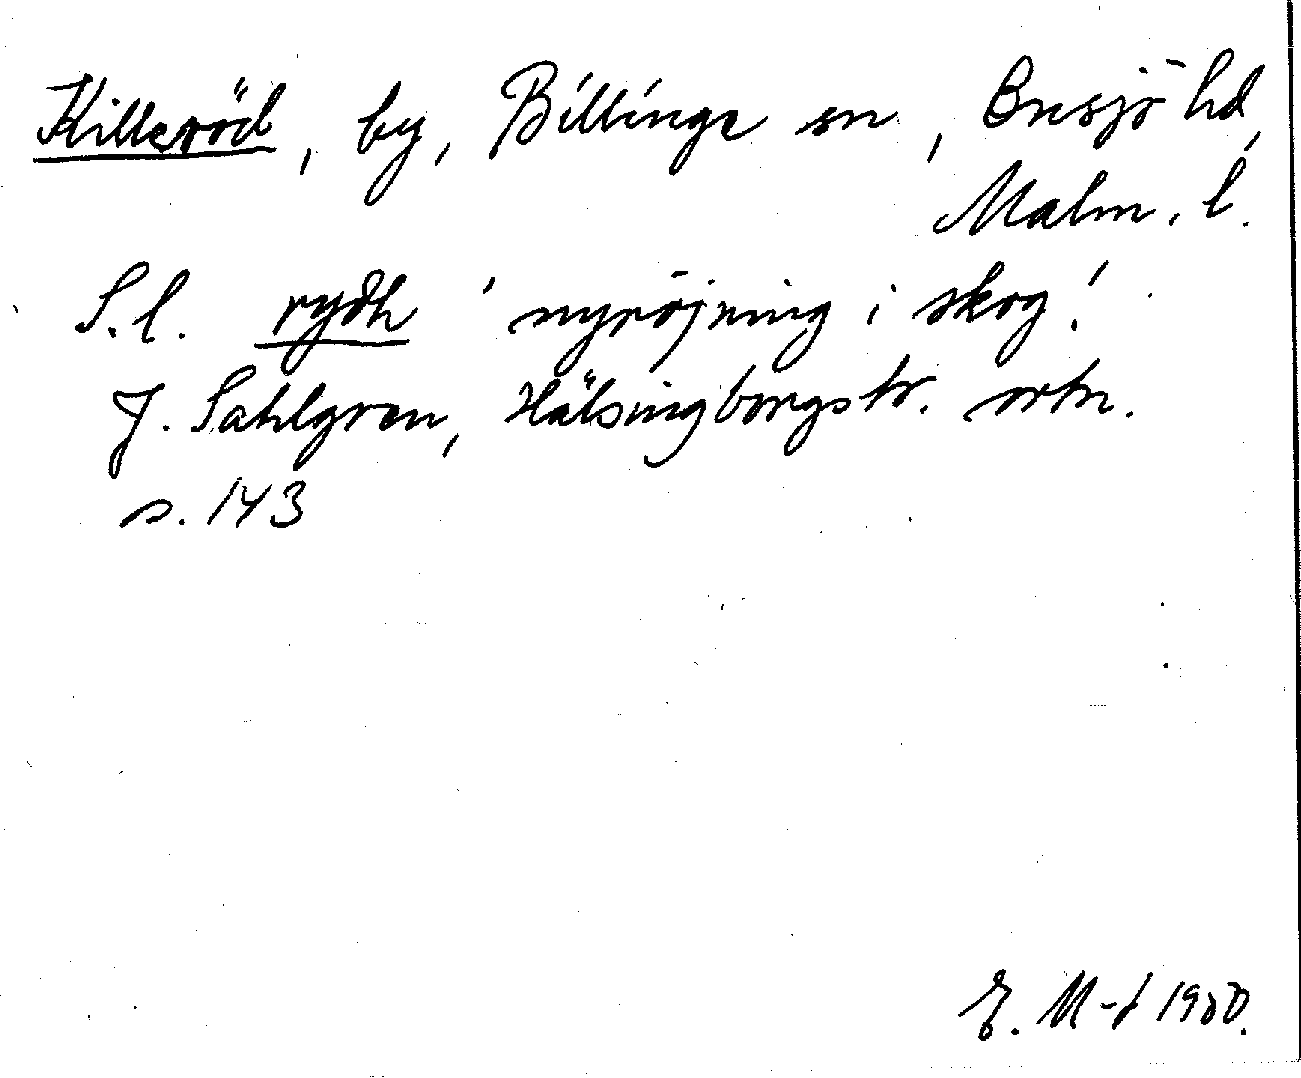 Killeröd, by, Billinge sn, Onsjö hd,
Malm. l.
S.l. rydh 'nyröjning i skog'.
J. Sahlgren, Hälsingborgstr. ortn.
s. 143
E. M-f 1900.